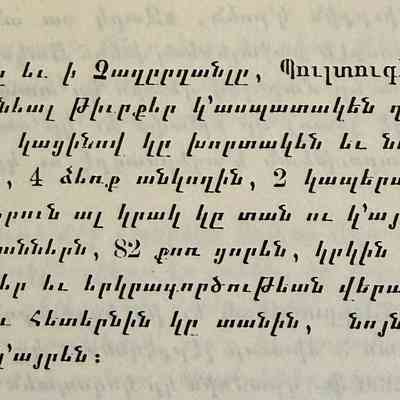 եւ ի Չաղըրղանլը, Պուլտուգ
նեալ Թիւրքեր կ՚ասպատակեն
կացինով կը խորտակեն եւ
, 4 ձեռք անկողին, 2 կապերտ
րուն ալ կրակ կը տան ու կ՚այ
աններն, 82 քոռ ցորեն, կրկին
եր եւ երկրագործութեան վերա
Հետերնին կը տանին, նոյն
կ՚այրեն։